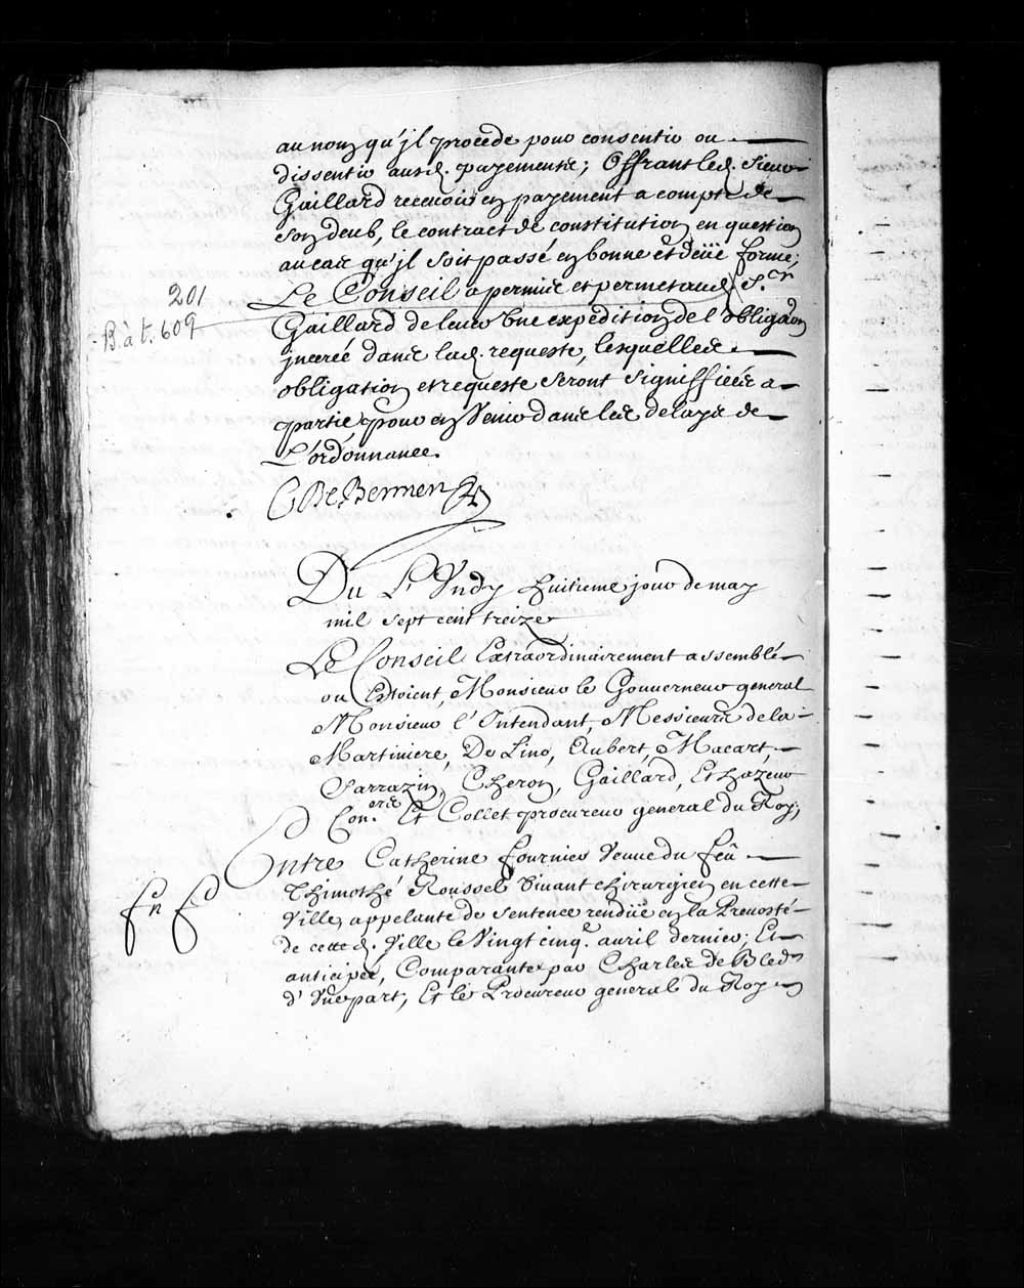 au nom qu'jl procede pour consentir ou
dissentir ausd. payements; Offrant led. Sieur
Gaillard recevoir en payement a compte de
son deub, le contract de constitution en question
au cas qu'jl soit passé en bonne et deüe forme;
Le Conseil a permis et permet aud. S.r
Gaillard de lever Vne expedition de l'obliga͠on
jnserée dans lad. requeste, lesquelles
obligation et requeste seront signiffiées a
partie pour en Venir dans les delays de
L'ordonnance.
201
B. à t. 609
C De Bermen
Du LVndy huitieme jour de may
mil sept cent treize
Le Conseil Extraordinairement assemblé
ou Estoient, Monsieur le Gouverneur general
Monsieur l'Intendant, Messieurs de la
Martiniere, De Lino, Aubert, Macart,
Sarrazin, Cheron, Gaillard, Et hazeur
Con.ers Et Collet procureur general du Roy;
Entre Catherine fournier Veuue du feü
Thimothé Roussel Viuant chirurgien en cette
Ville, appelante de sentence rendüe en la Preuosté
de cette d. Ville le Vingt cinq.e auril dernier; Et
anticipée, Comparante par Charles de Bled
d'Vne part, Et le Procureur general du Roy